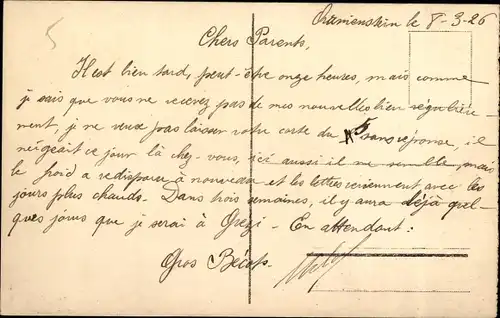 5
le 8-3-26
Chers Parents,
Il est bien tard, peut-être onze heures, mais comme
je sais que vous ne recevez pas de mes nouvelles bien régulière-
ment, je ne veux pas laisser votre carte du 5 sans réponse, il
neigeait ce jour là chez-vous, ici aussi il me semble, mais
le froid a redisparu à nouveau et les lettres reviennent avec les
jours plus chauds. Dans trois semaines, il y aura déjà quel-
ques jours que je serai à Grézi - En attendant:
Gros Bécots.